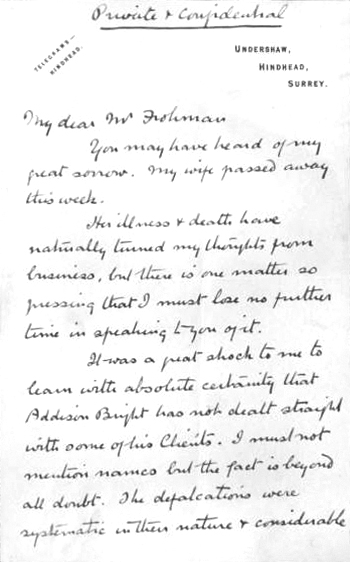 Private & Confidential
TELEGRAMS—
HINDHEAD.
UNDERSHAW,
HINDHEAD,
SURREY.
My dear Mr Frohman
You may have heard of my
great sorrow. My wife passed away
this week.
Her illness & death have
naturally turned my thoughts from
business, but there is one matter so
pressing that I must lose no further
time in speaking to you of it.
It was a great shock to me to
learn with absolute certainity that
Addison Bright has not dealt straight
with some of his Clients. I must not
mention names but the fact is beyond
all doubt. The defalcations were
systematic in their nature & considerable